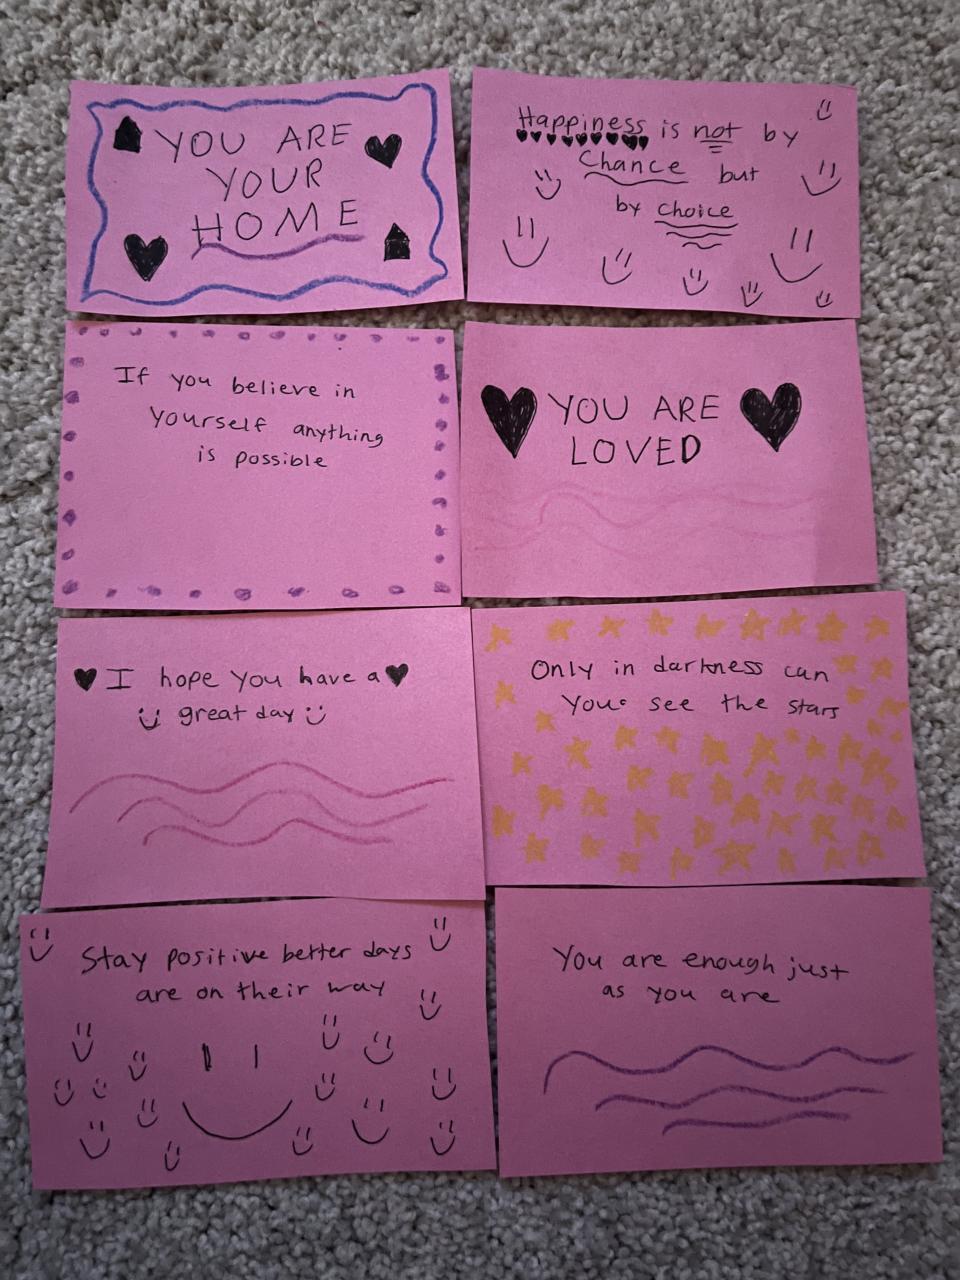 YOU ARE
YOUR
HOME
Happiness is not by
Chance but
by choice
If you believe in
yourself anything
is possible
YOU ARE
LOVED
I hope you have a
great day
Only in darkness can
you see the stars
Stay positive better days
are on their way
You are enough just
as you are